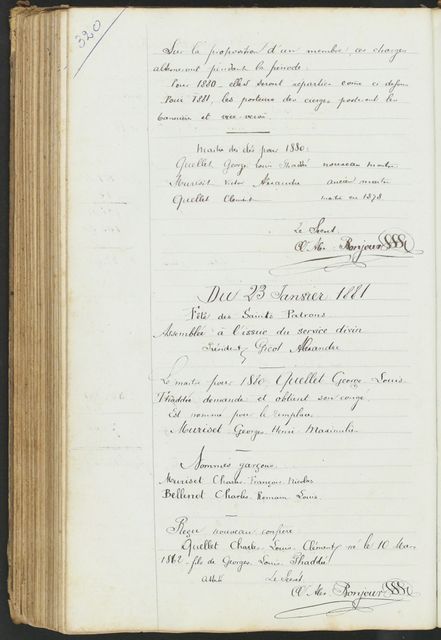 320
Sur la proposition d'un membre, ces charges
alterneront pendant la période.
Pour 1880 elles seront réparties come ci dessus
Pour 1881, les porteurs des cierges porteront les
bannières et vice versa.
Maitre des clés pour 1880:
Quellet Georges Louis Thaddé nouveau maitre
Muriset Victor Alexandre ancien maitre
Quellet Clément maitre en 1878
Le Secret.
Bonjour
Du 23 Janvier 1881
Fête des Saints Patrons
Assemblée à l'issue du service divin
Président Gicot Alexandre
Le maitre pour 1880, Quellet George Louis
Thaddée demande et obtient son congé.
Est nommé pour le remplacer
Muriset Georges Henri Maximilie
Nommés garçons
Muriset Charles François Nicolas
Bellenot Charles Romain Louis
Reçu nouveau confrère
Quellet Charles Louis Clément né le 10 Mars
1862 fils de Georges Louis Thaddée
Le Secret
Bonjour